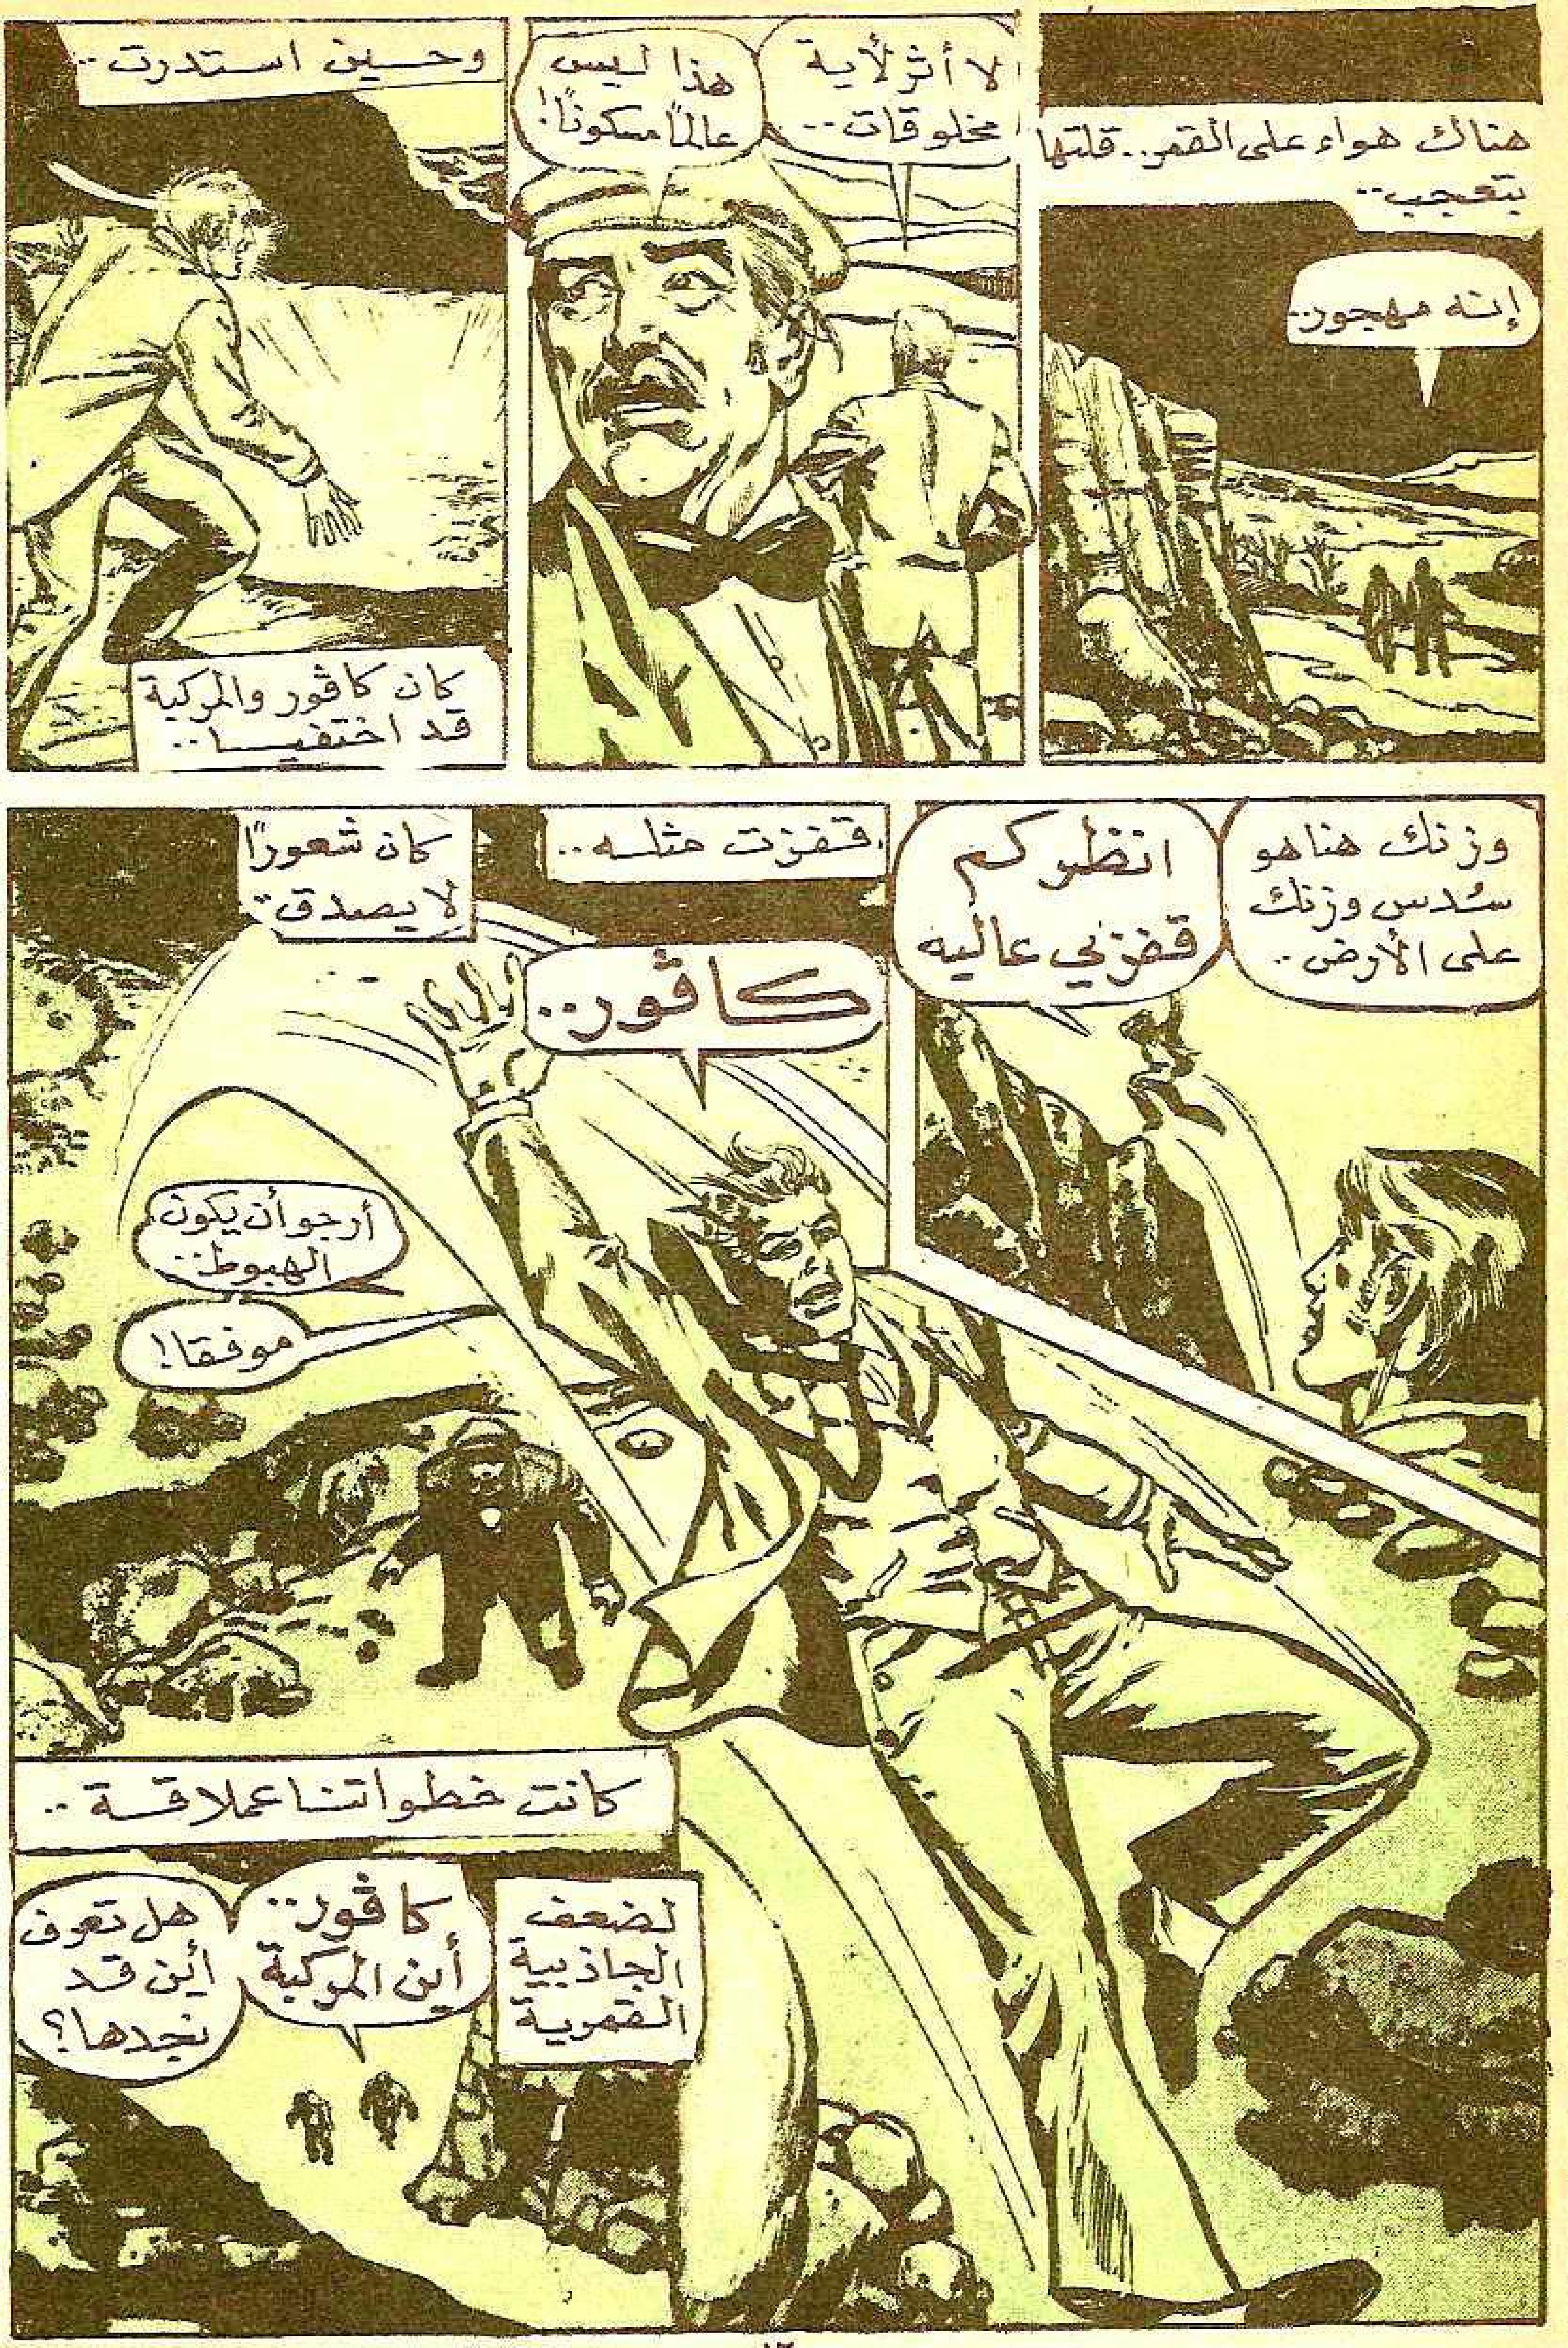 هناك هواء على القمر.. قلتها
بتعجب..
إنه مهجور..
لا أثر لأية
مخلوقات..
هذا ليس
عالمًا مسكونًا!
وحين استدرت..
كان كاڤور والمركبة
قد اختفيا..
وزنك هنا هو
سُدس وزنك
على الأرض..
انظر كم
قفزتي عاليه
قفزت مثله..
كان شعورًا
لا يصدق..
كاڤور..
أرجو أن يكون
الهبوط..
موفقا!
كانت خطواتنا عملاقة..
لضعف
الجاذبية
القمرية
كاڤور..
أين المركبة
هل تعرف
أين قد
نجدها؟
١٣